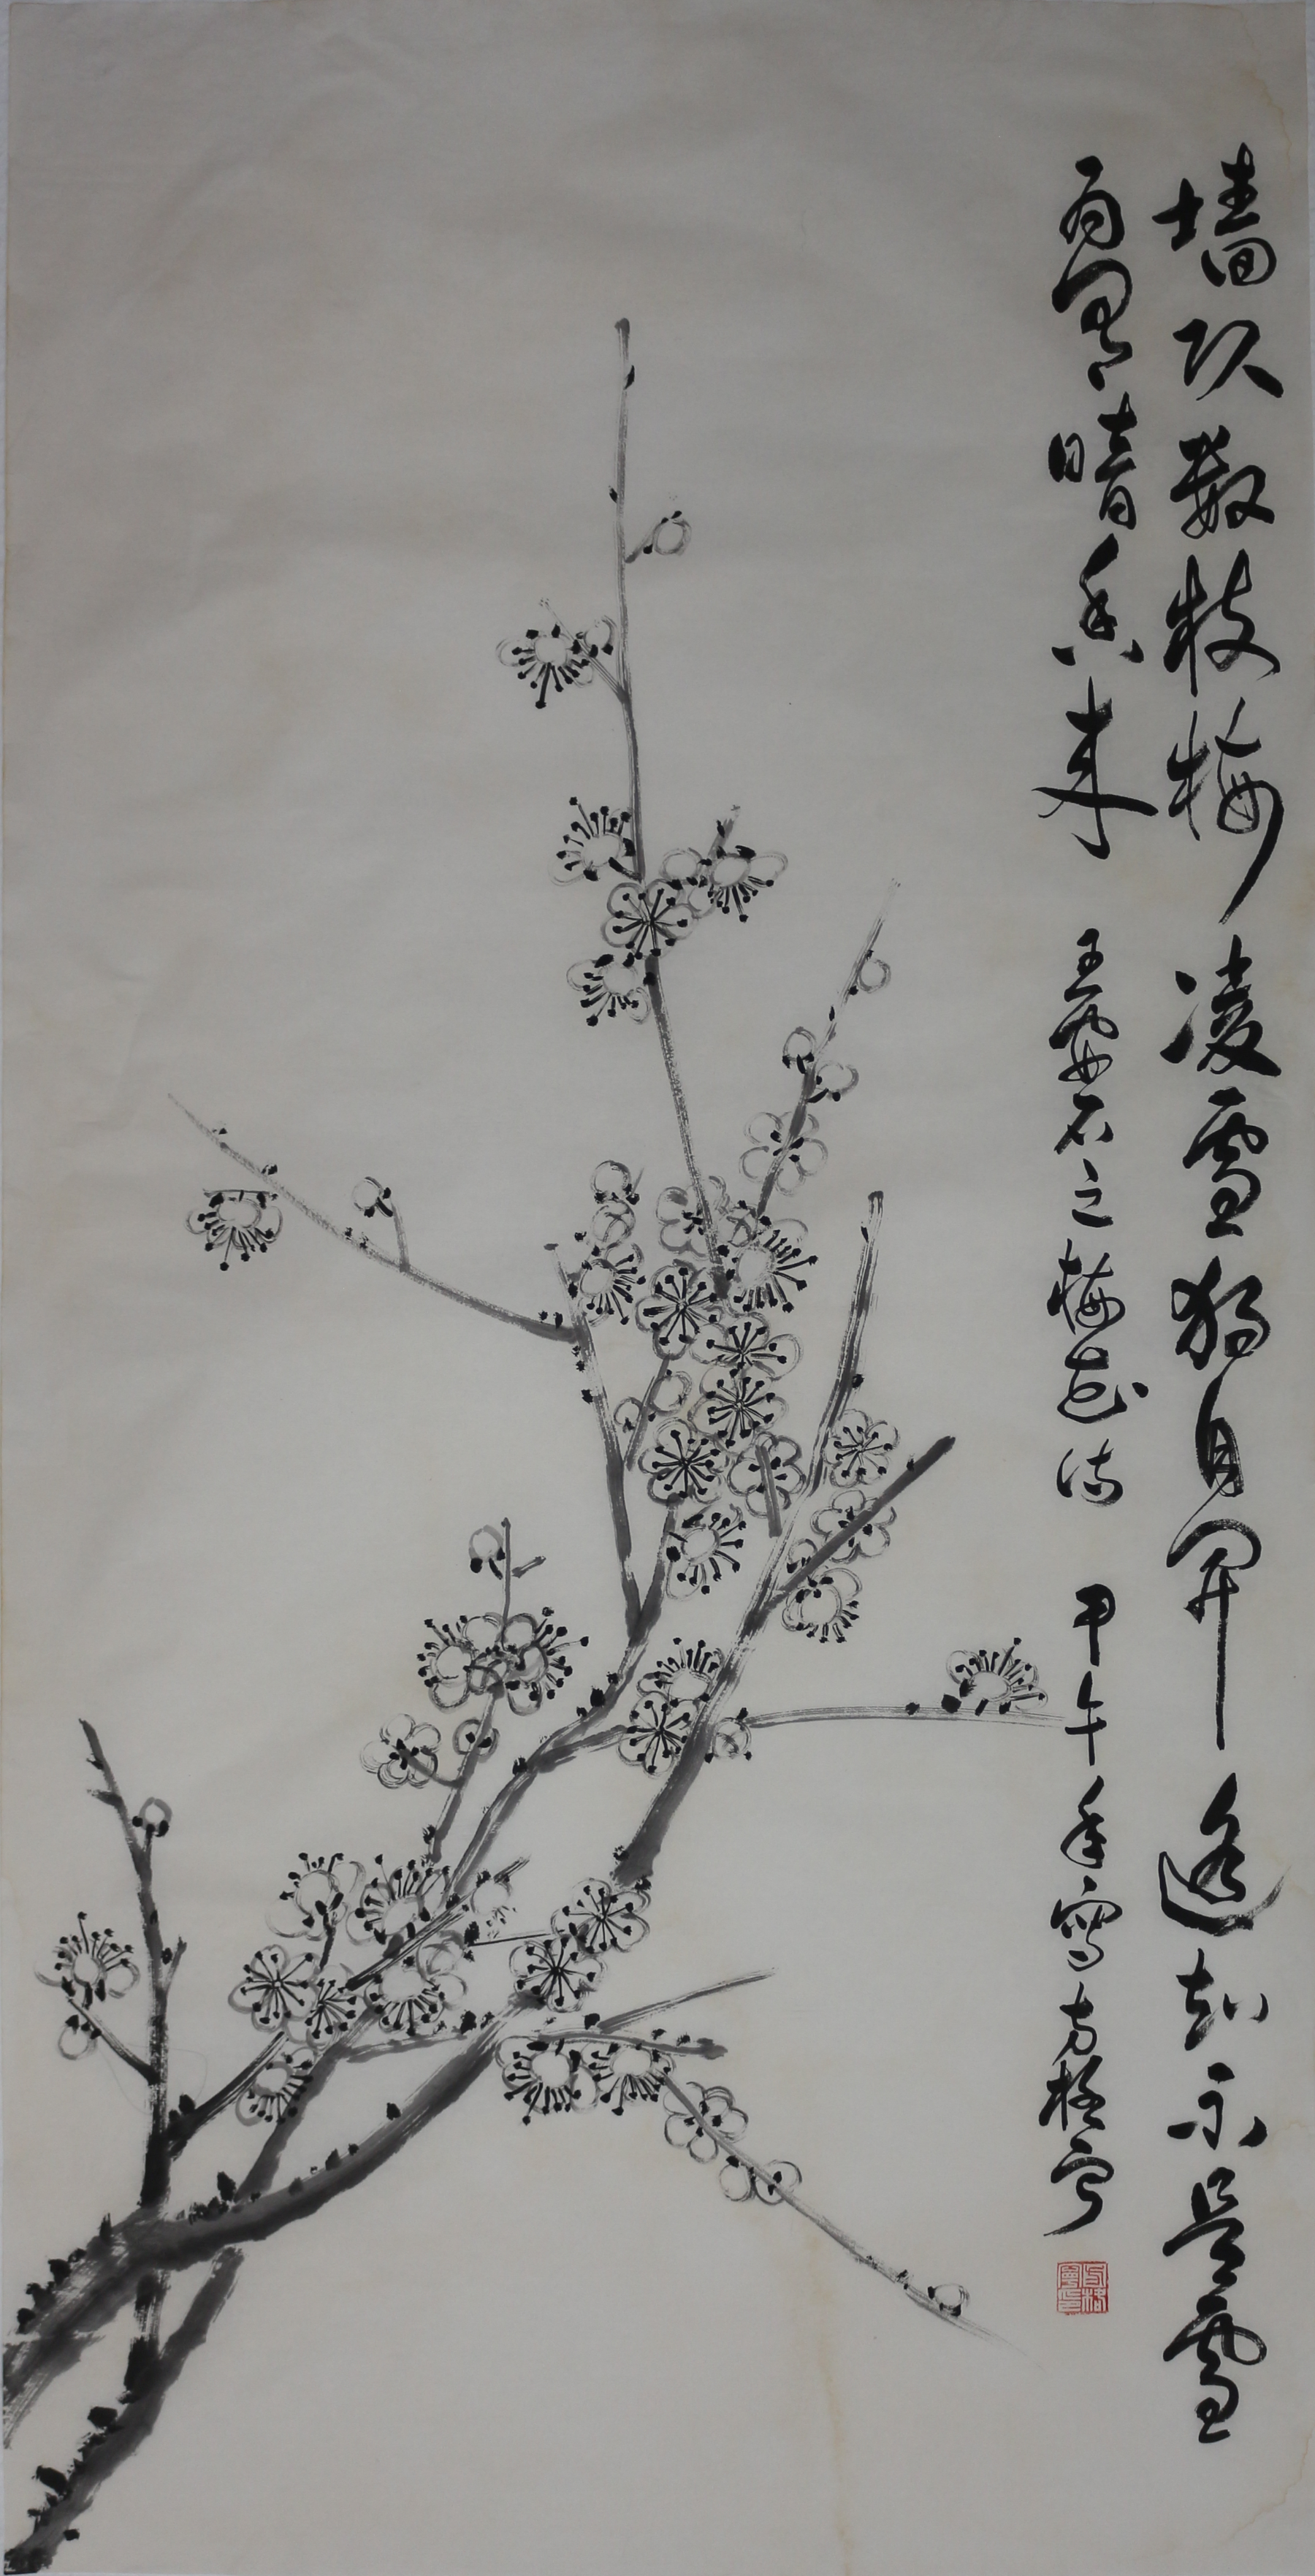 墙数枝梅凌雪独自开遥知不是雪
为有暗香来 王安石之梅花诗 甲午年